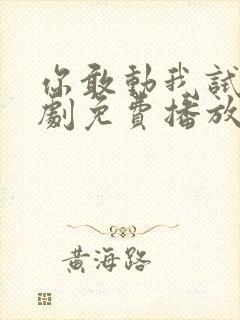 你敢動我試
劇免費播放
黃海路